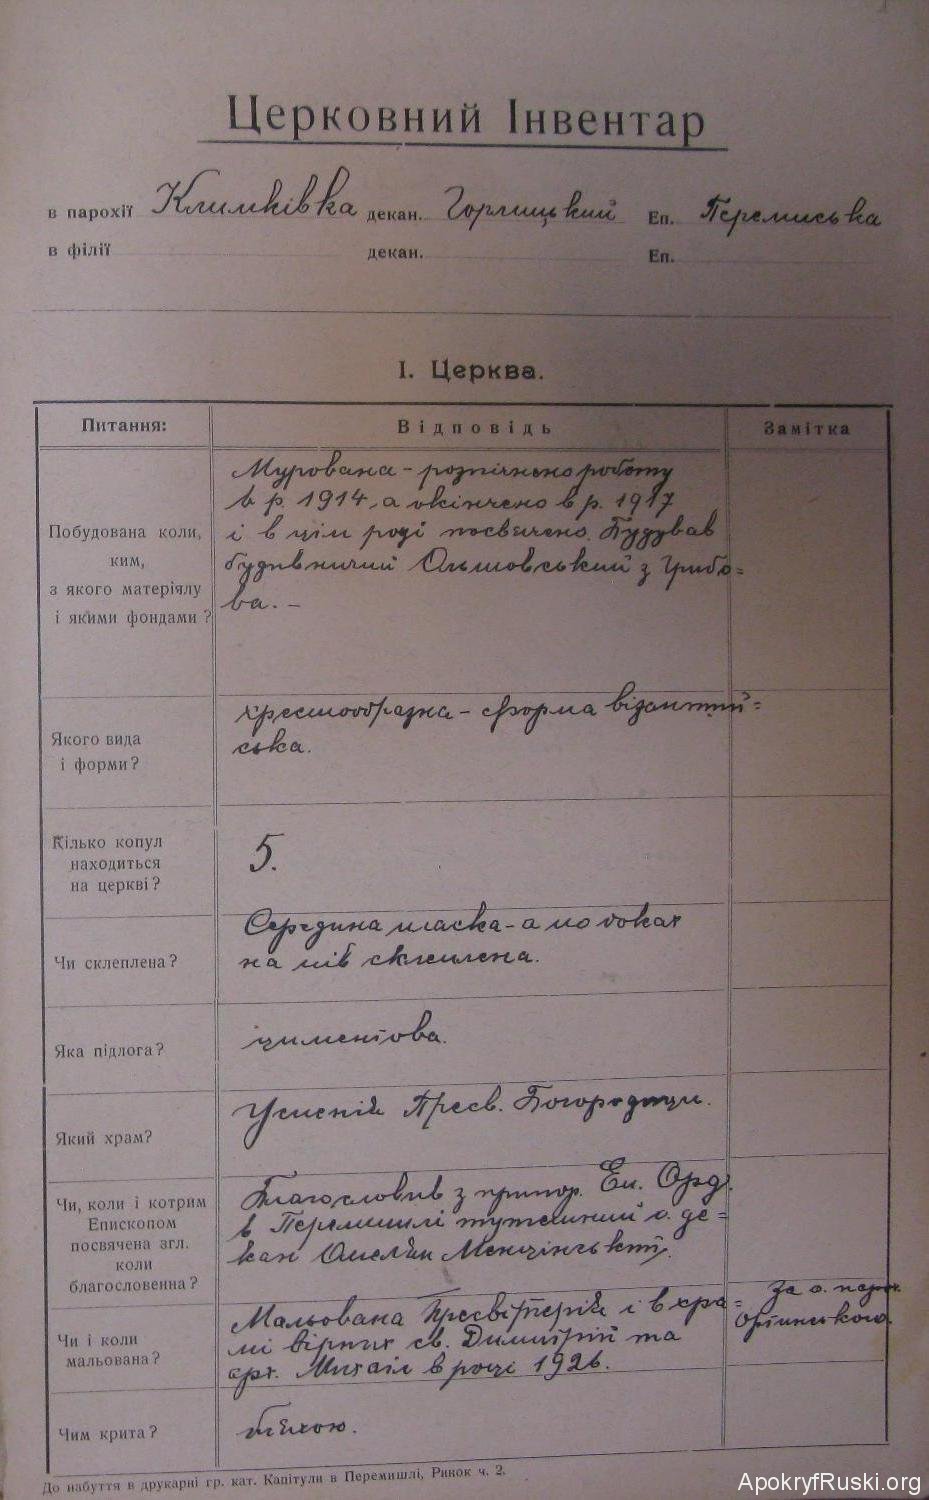 Церковний Інвентар
в парохії Климківка декан. Горлицький Еп. Перемиська
в філії декан. Еп.
І. Церква.
Питання: Відповідь Замітка
Побудована коли,
ким,
з якого матеріялу
і якими фондами?
Мурована - розпічнено роботу
в р. 1914, а окінчено в р. 1917
і в цім році посвячено. Будував
будівничий Ольшовський з Грибо=
ва. -
Якого вида
і форми?
хрестообразна - форма візантий=
ська.
Кілько копул
находиться
на церкві?
5.
Чи склеплена?
Середина пласка - а по боках
на пів склеплена.
Яка підлога?
циментова.
Який храм?
Успеній Пресв. Богородици.
Чи, коли і котрим
Епископом
посвячена згл.
коли
благословенна?
Благословив з припор. Еп. Орд.
в Перемишлі тутешний о. де=
кан Омелян Менцінський.
Чи і коли
мальована?
Мальована Пресвітерій і в хра=
мі вірних св. Димитрій та
арх. Михаіл в році 1926.
За о. пароха
Чим крита?
бляхою.
До набуття в друкарні гр. кат. Капітули в Перемишлі, Ринок ч. 2.
ApokryfRuski.org